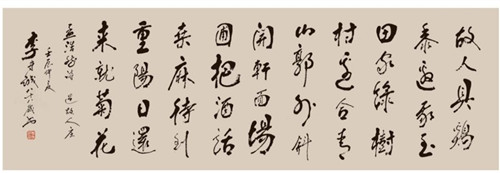 故人具鷄
黍邀我至
田家綠樹
村邊合青
山郭外斜
開軒面場
圃把酒話
桑麻待到
重陽日還
来就菊花
孟浩然詩 過故人庄
壬辰仲夏